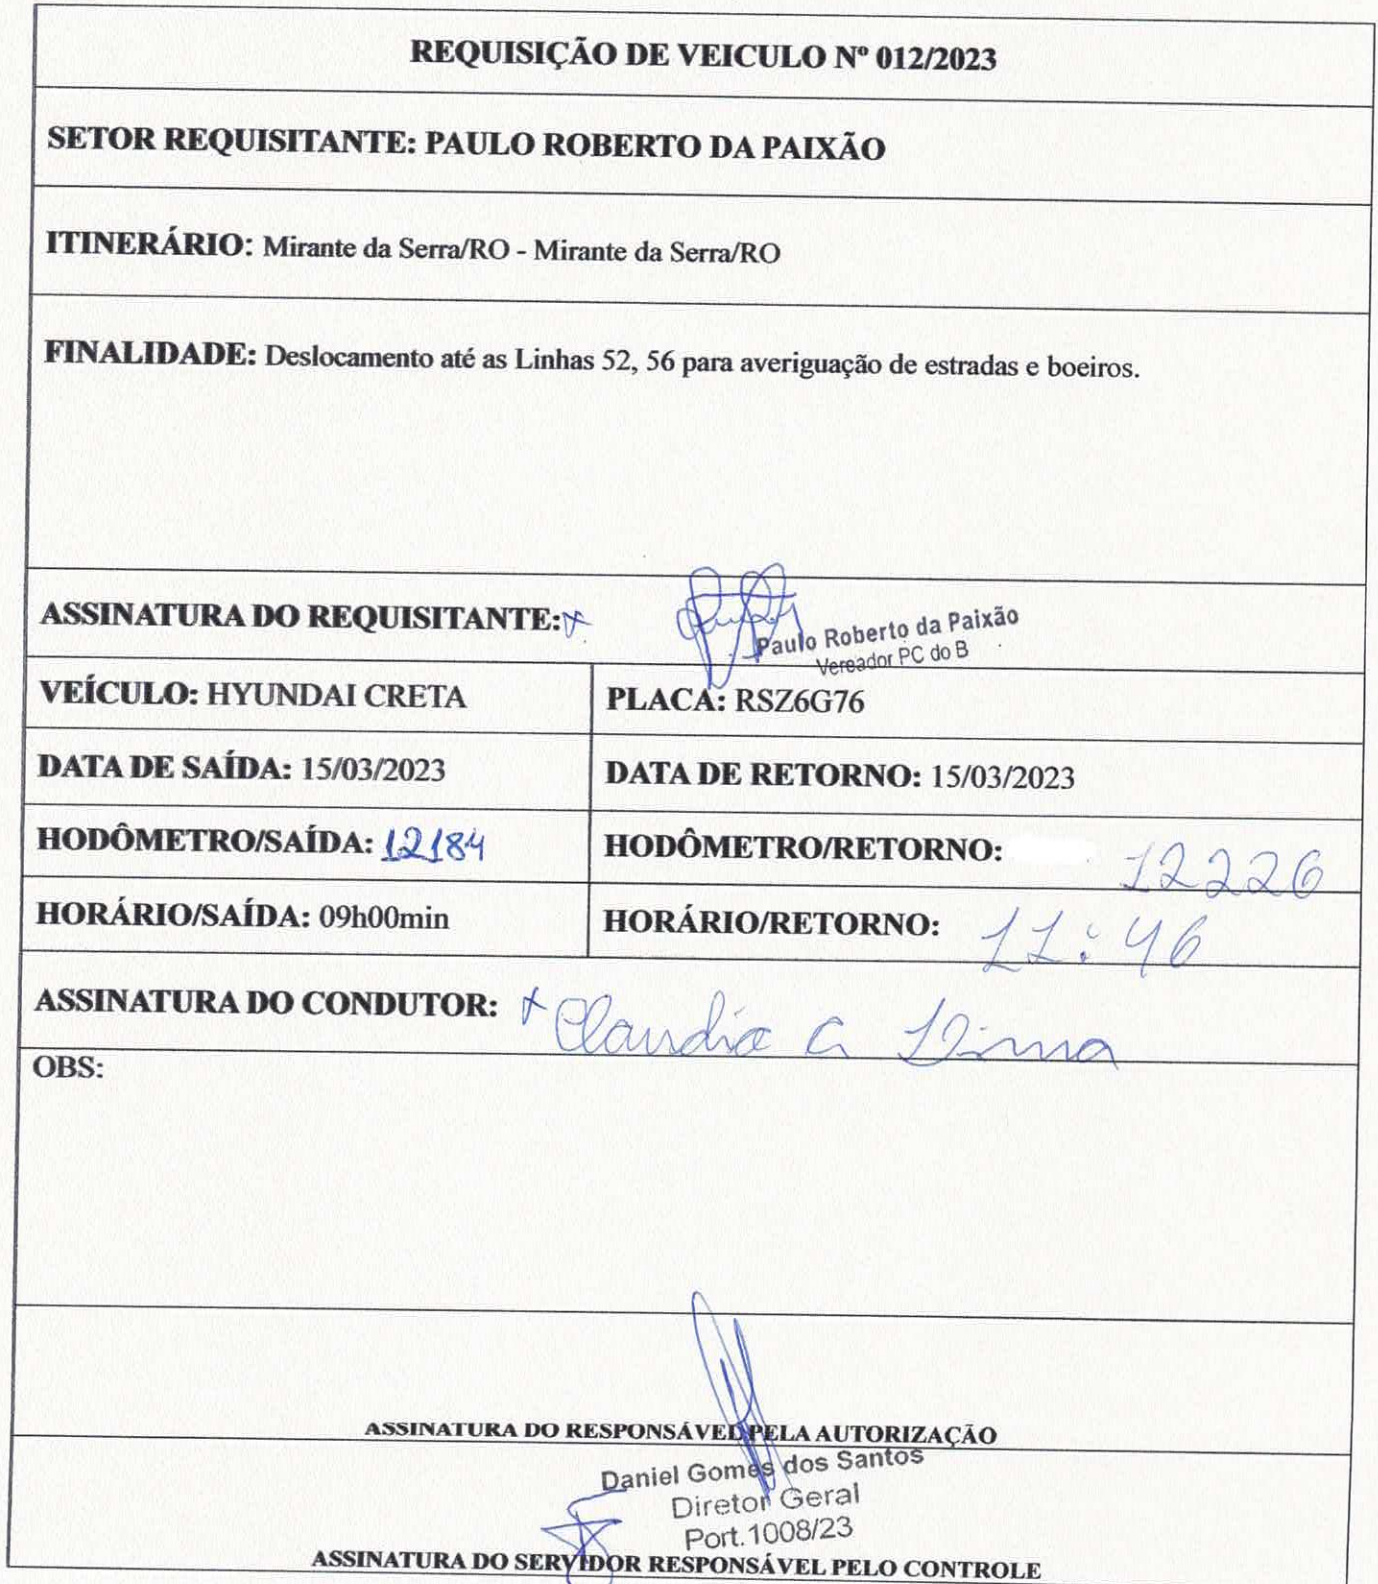 REQUISIÇÃO DE VEICULO Nº 012/2023
SETOR REQUISITANTE: PAULO ROBERTO DA PAIXÃO
ITINERÁRIO: Mirante da Serra/RO - Mirante da Serra/RO
FINALIDADE: Deslocamento até as Linhas 52, 56 para averiguação de estradas e boeiros.
ASSINATURA DO REQUISITANTE: x
Paulo Roberto da Paixão
Vereador PC do B
VEÍCULO: HYUNDAI CRETA
PLACA: RSZ6G76
DATA DE SAÍDA: 15/03/2023
DATA DE RETORNO: 15/03/2023
HODÔMETRO/SAÍDA: 12184
HODÔMETRO/RETORNO: 12226
HORÁRIO/SAÍDA: 09h00min
HORÁRIO/RETORNO: 11:46
ASSINATURA DO CONDUTOR: x Claudia G Lima
OBS:
ASSINATURA DO RESPONSÁVEL PELA AUTORIZAÇÃO
Daniel Gomes dos Santos
Diretor Geral
Port.1008/23
ASSINATURA DO SERVIDOR RESPONSÁVEL PELO CONTROLE